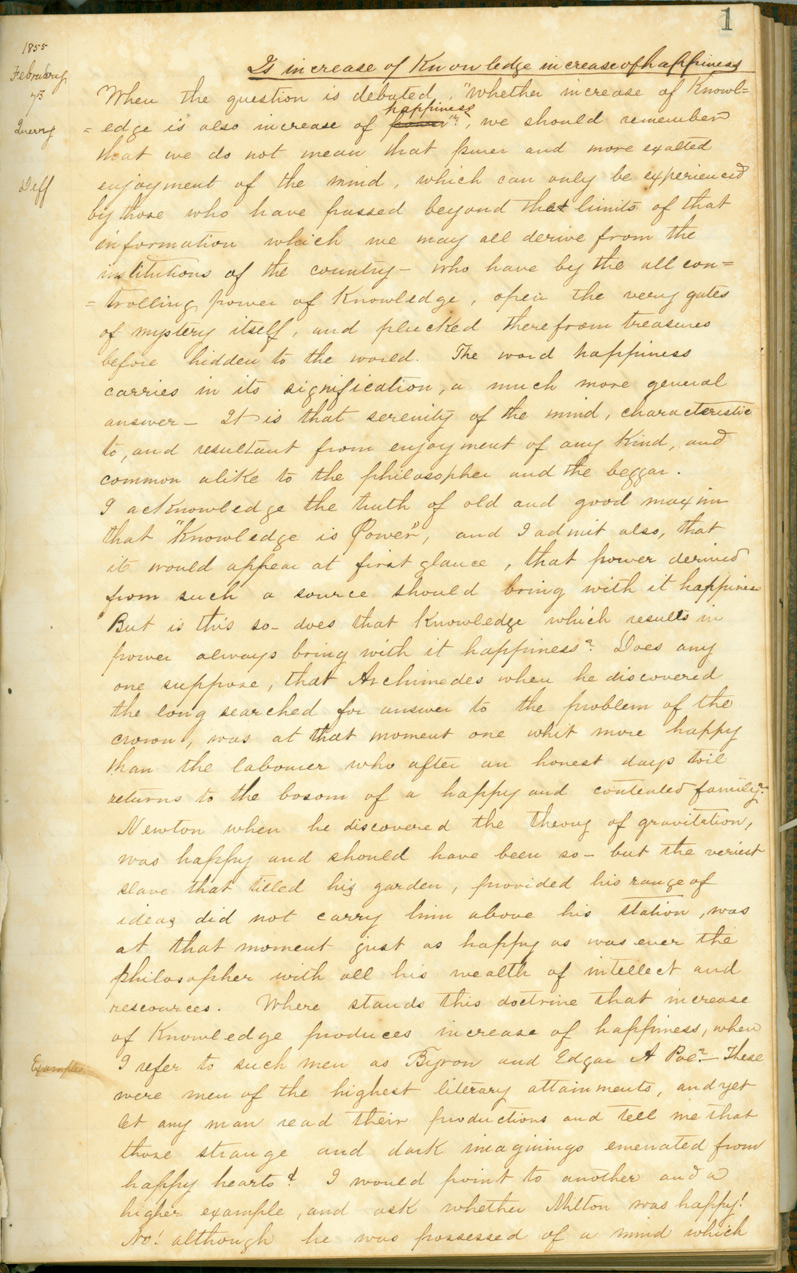 1
1855
February
73
Query
Deff
Is increase of Knowledge increase of happiness
When the question is debated, "Whether increase of Knowl=
=edge is also increase of happiness power"?, we should remember
that we do not mean that purer and more exalted
enjoyment of the mind, which can only be experienced
by those who have passed beyond that limits of that
information which we may all derive from the
institutions of the country – who have by the all con=
=trolling power of Knowledge, open the very gates
of mystery itself, and plucked therefrom treasures
before hidden to the world. The word happiness
carries in its signification, a much more general
answer – It is that serenity of the mind, characteristic
to, and resultant from enjoyment of any Kind, and
common alike to the philosopher and the beggar.
I acknowledge the truth of old and good maxim
that "Knowledge is Power", and I admit also, that
it would appear at first glance, that power derived
from such a source should bring with it happiness
"But is this so – does that Knowledge which results in
power always bring with it happiness"? Does any
one suppose, that Archimedes when he discovered
the long searched for answer to the problem of the
crown, was at that moment one whit more happy
than the labourer who after an honest days toil
returns to the bosom of a happy and contented family.
Newton when he discovered the theory of gravitation,
was happy and should have been so – but the veriest
slave that tilled his garden, provided his range of
ideas did not carry him above his station, was
at that moment just as happy as was ever the
philosopher with all his wealth of intellect and
rescources. Where stands this doctrine that increase
of Knowledge produces increase of happiness, when
Examples
I refer to such men as Byron and Edgar A Poe? – These
were men of the highest literary attainments, and yet
let any man read their productions and tell me that
those strange and dark imaginings emenated from
happy hearts? I would point to another and a
higher example, and ask whether Milton was happy!
No! although he was possessed of a mind which